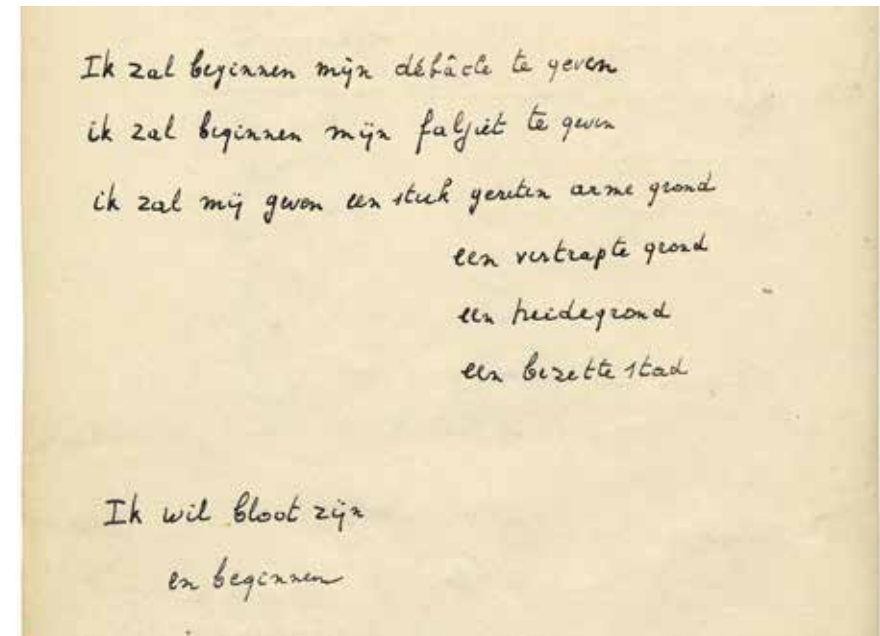 Ik zal beginnen mijn débâcle te geven
ik zal beginnen mijn faljiet te geven
ik zal mij geven een stuk gereten arme grond
een vertrapte grond
een heidegrond
een bezette stad
Ik wil bloot zijn
en beginnen